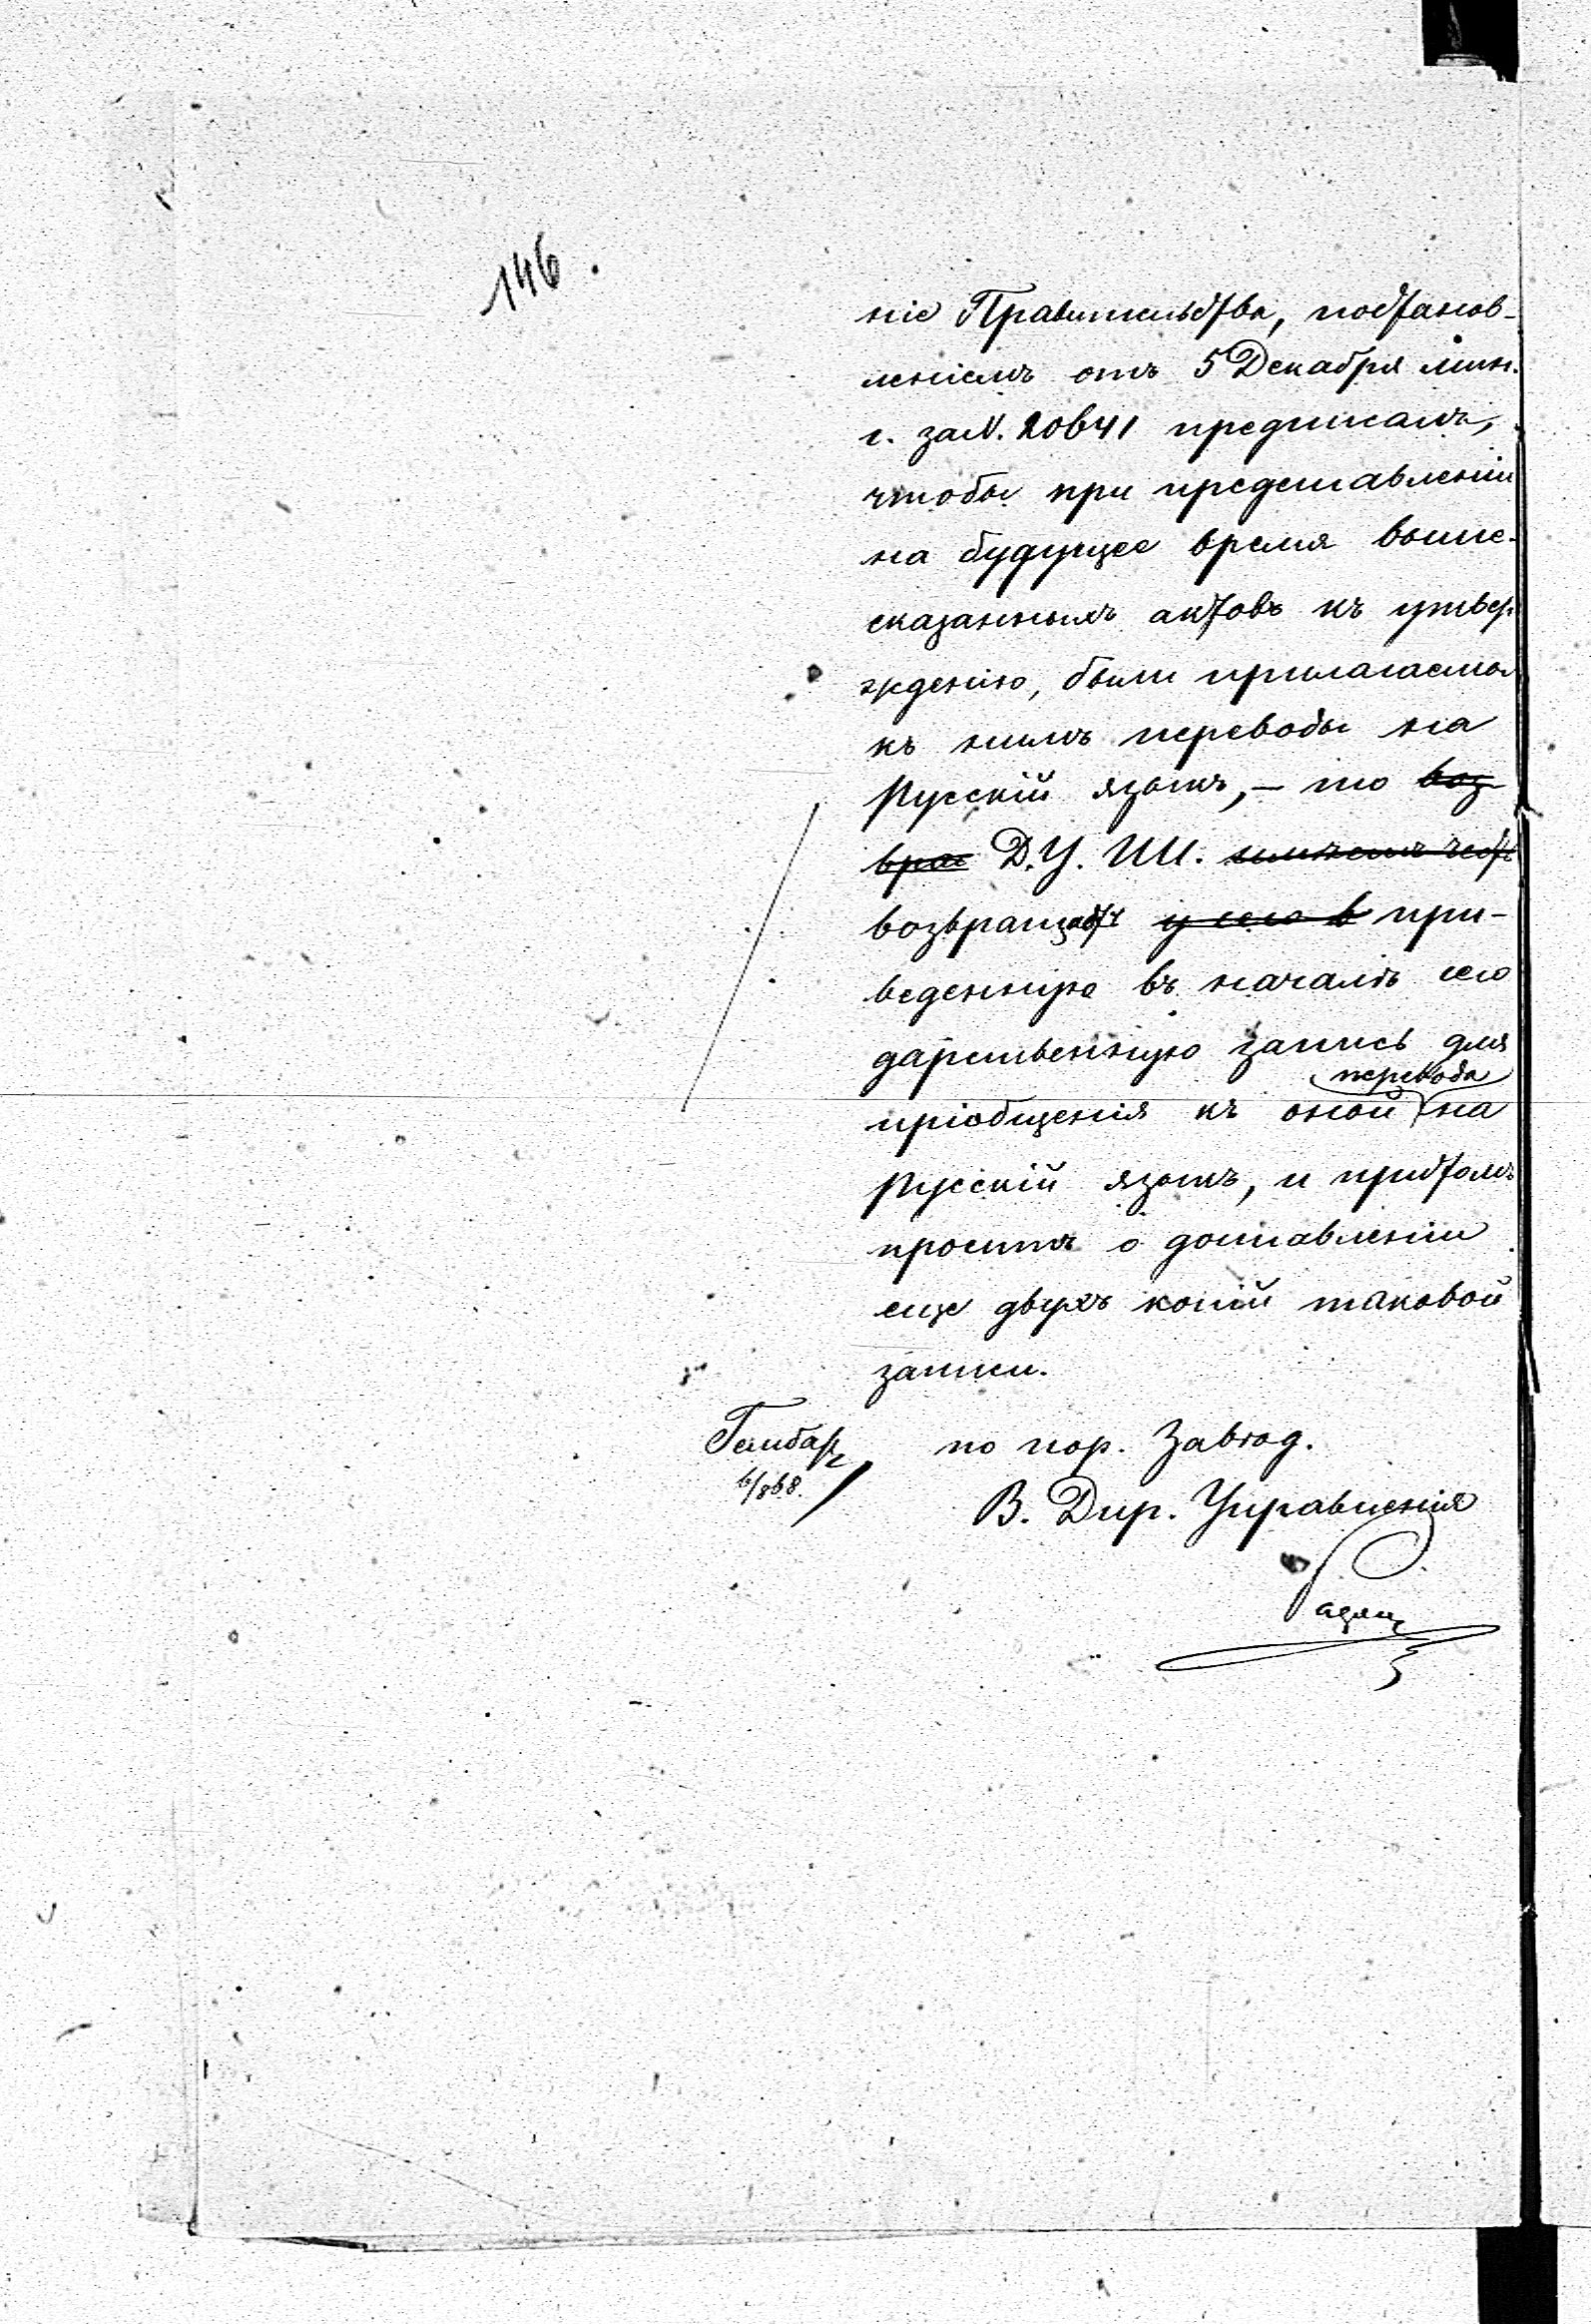 146.
ніе Правительства, постанов-
леніемъ отъ 5 Декабря мин.
г. за N. 20641 предписалъ,
чтобы при представленіи
на будущее время выше-
сказанныхъ актовъ къ утвер-
жденію, были прилагаемы
къ нимъ переводы на
Русскій языкъ, — то воз-
вра Д. У. И. имѣетъ честь
возвращать у сего в при-
веденную въ началѣ сего
дарственную запись для
перевода
пріобщенія къ оной на
Русскій языкъ, и притомъ
проситъ о доставленіи
еще двухъ копій таковой
записи.
по пор. Завѣд.
6/868.
В. Дир. Управленія